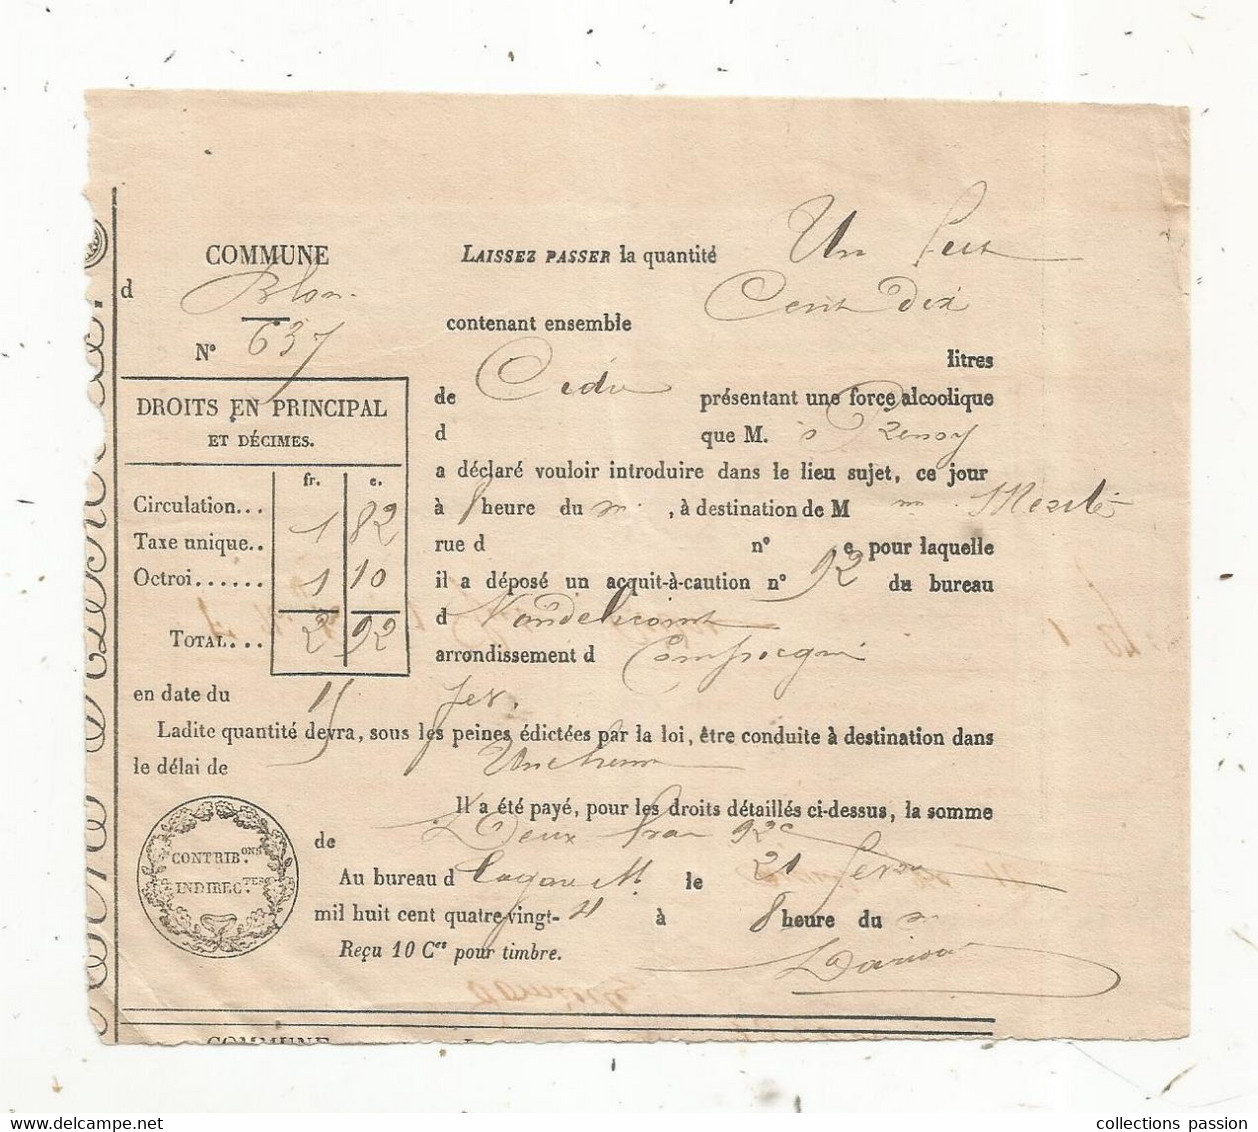 COMMUNE
d
N° 637
DROITS EN PRINCIPAL
ET DÉCIMES.
fr. c.
Circulation... 1 82
Taxe unique..
Octroi...... 1 10
TOTAL... 2 92
LAISSEZ PASSER la quantité Un fut
contenant ensemble Cent dix
litres
de Cidre présentant une force alcoolique
d que M.
a déclaré vouloir introduire dans le lieu sujet, ce jour
à 8 heure du m. , à destination de M
rue d n° e pour laquelle
il a déposé un acquit-à-caution n° 92 du bureau
d Vandelicourt
arrondissement d Compiègne
en date du 15 fer.
Ladite quantité devra, sous les peines édictées par la loi, être conduite à destination dans
le délai de Une heure
Il a été payé, pour les droits détaillés ci-dessus, la somme
de Deux fran 92c
Au bureau d le 21
mil huit cent quatre-vingt- à 8 heure du m
Reçu 10 Ces pour timbre.
CONTRIB.ONS
INDIREC.TES
COMMUNE
collections passion